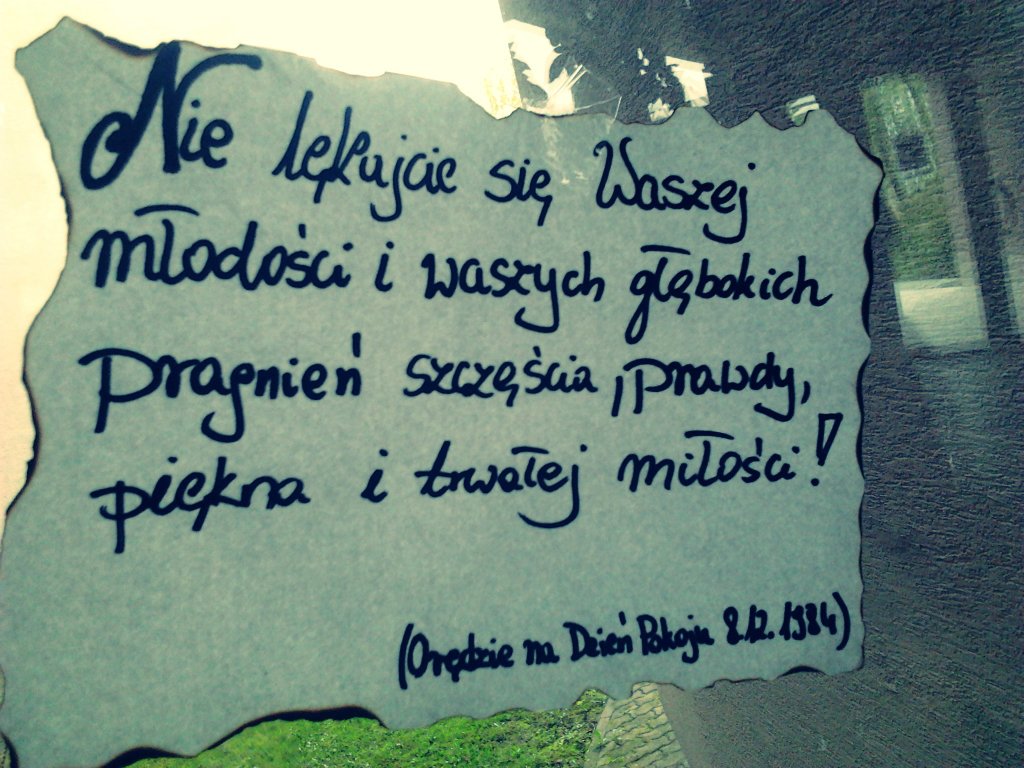 Nie lękajcie się Waszej
młodości i waszych głębokich
pragnień szczęścia, prawdy,
piękna i trwałej miłości!
(Orędzie na Dzień Pokoju 8.12.1984)